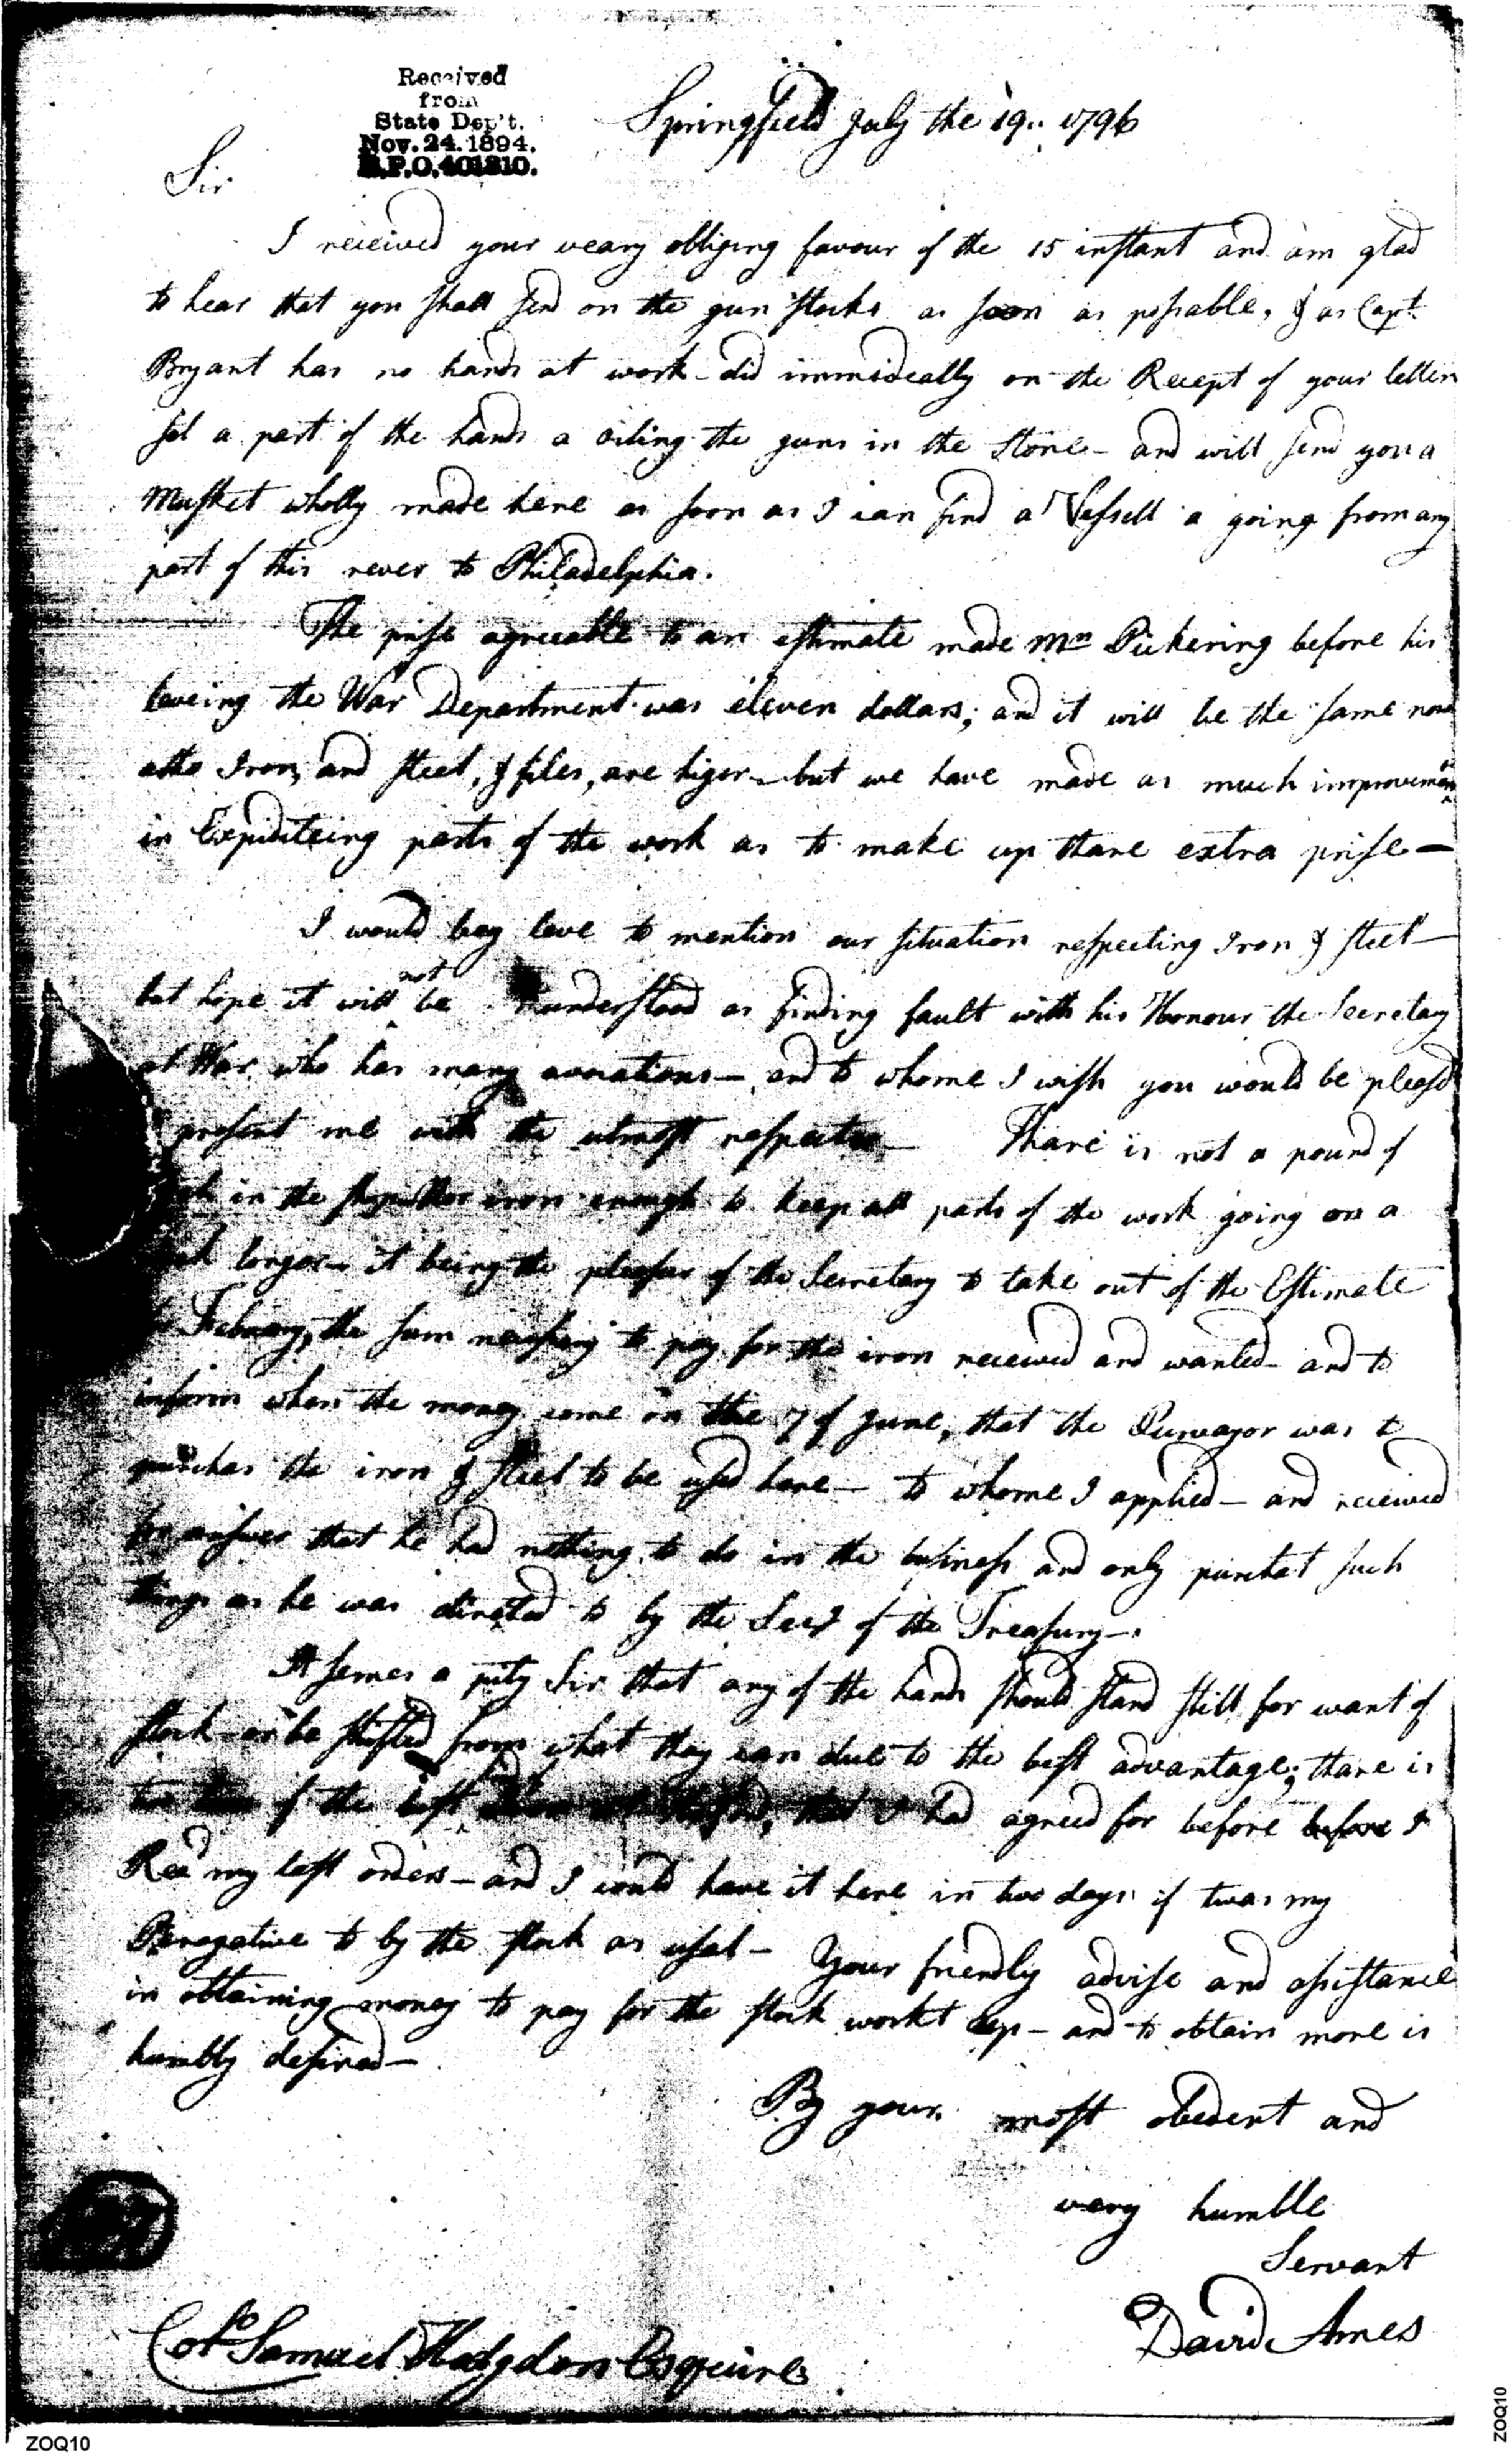 Received
from
State Dep't.
Nov. 24. 1894.
Springfield July the 19.. 1796
Sir
I received your veary obliging favour of the 15 instant and am glad
to hear that you shall send on the gun stocks as soon as possable, & as Capt.
Bryant has no hands at work - did immideally on the Recept of your letter
set a part of the hands a oiling the guns in the store - and will send you a
Musket wholly made here as soon as I can find a Vessell a going from any
part of this rever to Philadelphia.
The prise agreeable to an estimate made Mr. Pickering before his
leveing the War Department was eleven dollars; and it will be the same now
altho Iron, and steel, & files, are higer - but we have made as much improvement
in Expiditeing parts of the work as to make up thare extra prise -
I would beg leve to mention our situation respecting Iron & steel -
but hope it will not be understood as finding fault with his Honour the Secretary
at War who has many avocations - and to whome I wish you would be pleased
present me with the utmost respects - Thare is not a pound of
in the shops nor iron enough to keep all parts of the work going on a
longer - it being the pleasur of the Secretary to take out of the Estimate
Febuary, the sum nessesary to pay for the iron received and wanted - and to
inform when the money come on the 7 of June, that the Purvayor was to
purchas the iron & steel to be used here - to whome I applied - and received
for answer that he had nothing to do in the business and only purchat such
things as he was directed to by the Secy of the Treasury -.
It semes a pity Sir that any of the hands should stand still for want of
stock - or be shifted from what they can due to the best advantage; thare is
of the best that I had agreed for before before I
Recd my last orders - and I could have it here in two days if twas my
Peregative to by the stock as usal - Your friendly advise and assistance
in obtaining money to pay for the stock workt up - and to obtain more is
humbly desired -
By your most obedent and
very humble
Servant
David Ames
Colo. Samuel Hodgdon Esquire
ZOQ10
ZOQ10